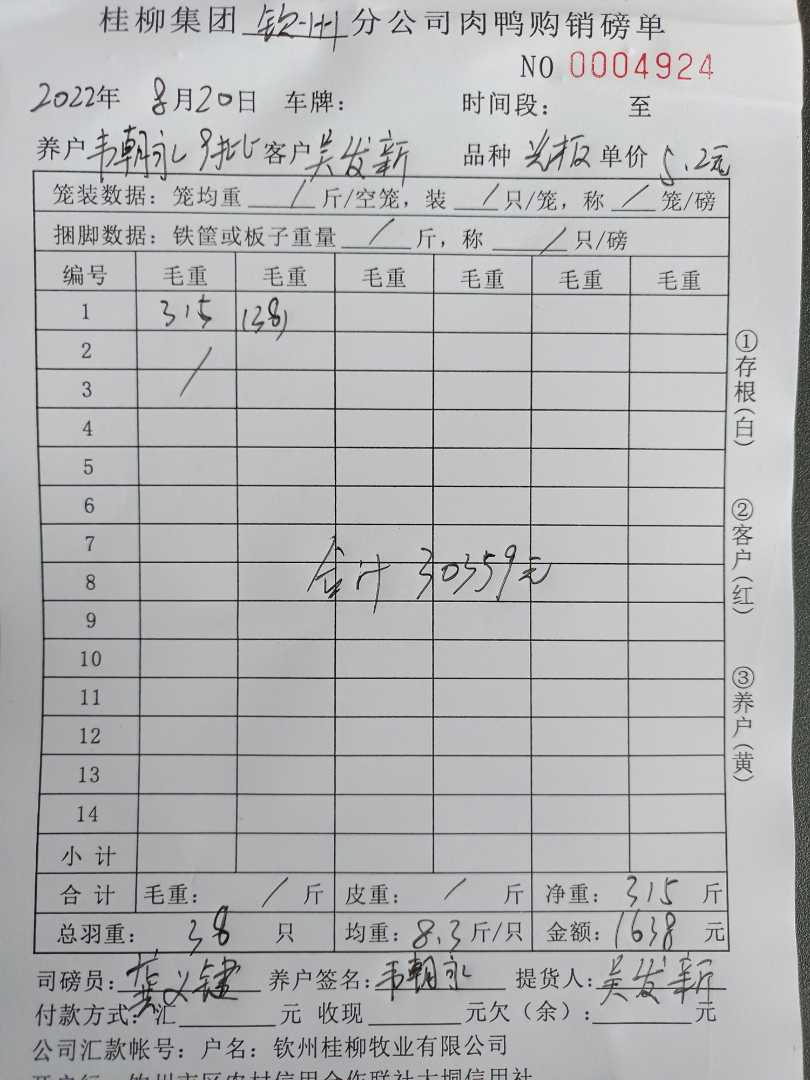 桂柳集团 钦州 分公司肉鸭购销磅单
NO 0004924
2022年 8月20日 车牌: 时间段: 至
养户 韦朝永 9批 客户 吴发新 品种 光板 单价 5.2元
笼装数据: 笼均重 / 斤/空笼, 装 / 只/笼, 称 / 笼/磅
捆脚数据: 铁筐或板子重量 / 斤, 称 / 只/磅
编号 毛重 毛重 毛重 毛重 毛重 毛重
1 315 (38)
2 /
3
4
5
6
7
8
合计 30359元
9
10
11
12
13
14
小计
合计 毛重: / 斤 皮重: / 斤 净重: 315 斤
总羽重: 38 只 均重: 8.3斤/只 金额: 1638 元
①存根(白)
②客户(红)
③养户(黄)
司磅员: 龚义键 养户签名: 韦朝永 提货人: 吴发新
付款方式: 汇 元 收现 元欠(余): 元
公司汇款帐号: 户名: 钦州桂柳牧业有限公司
开户行: 钦州市区农村信用合作联社大垌信用社